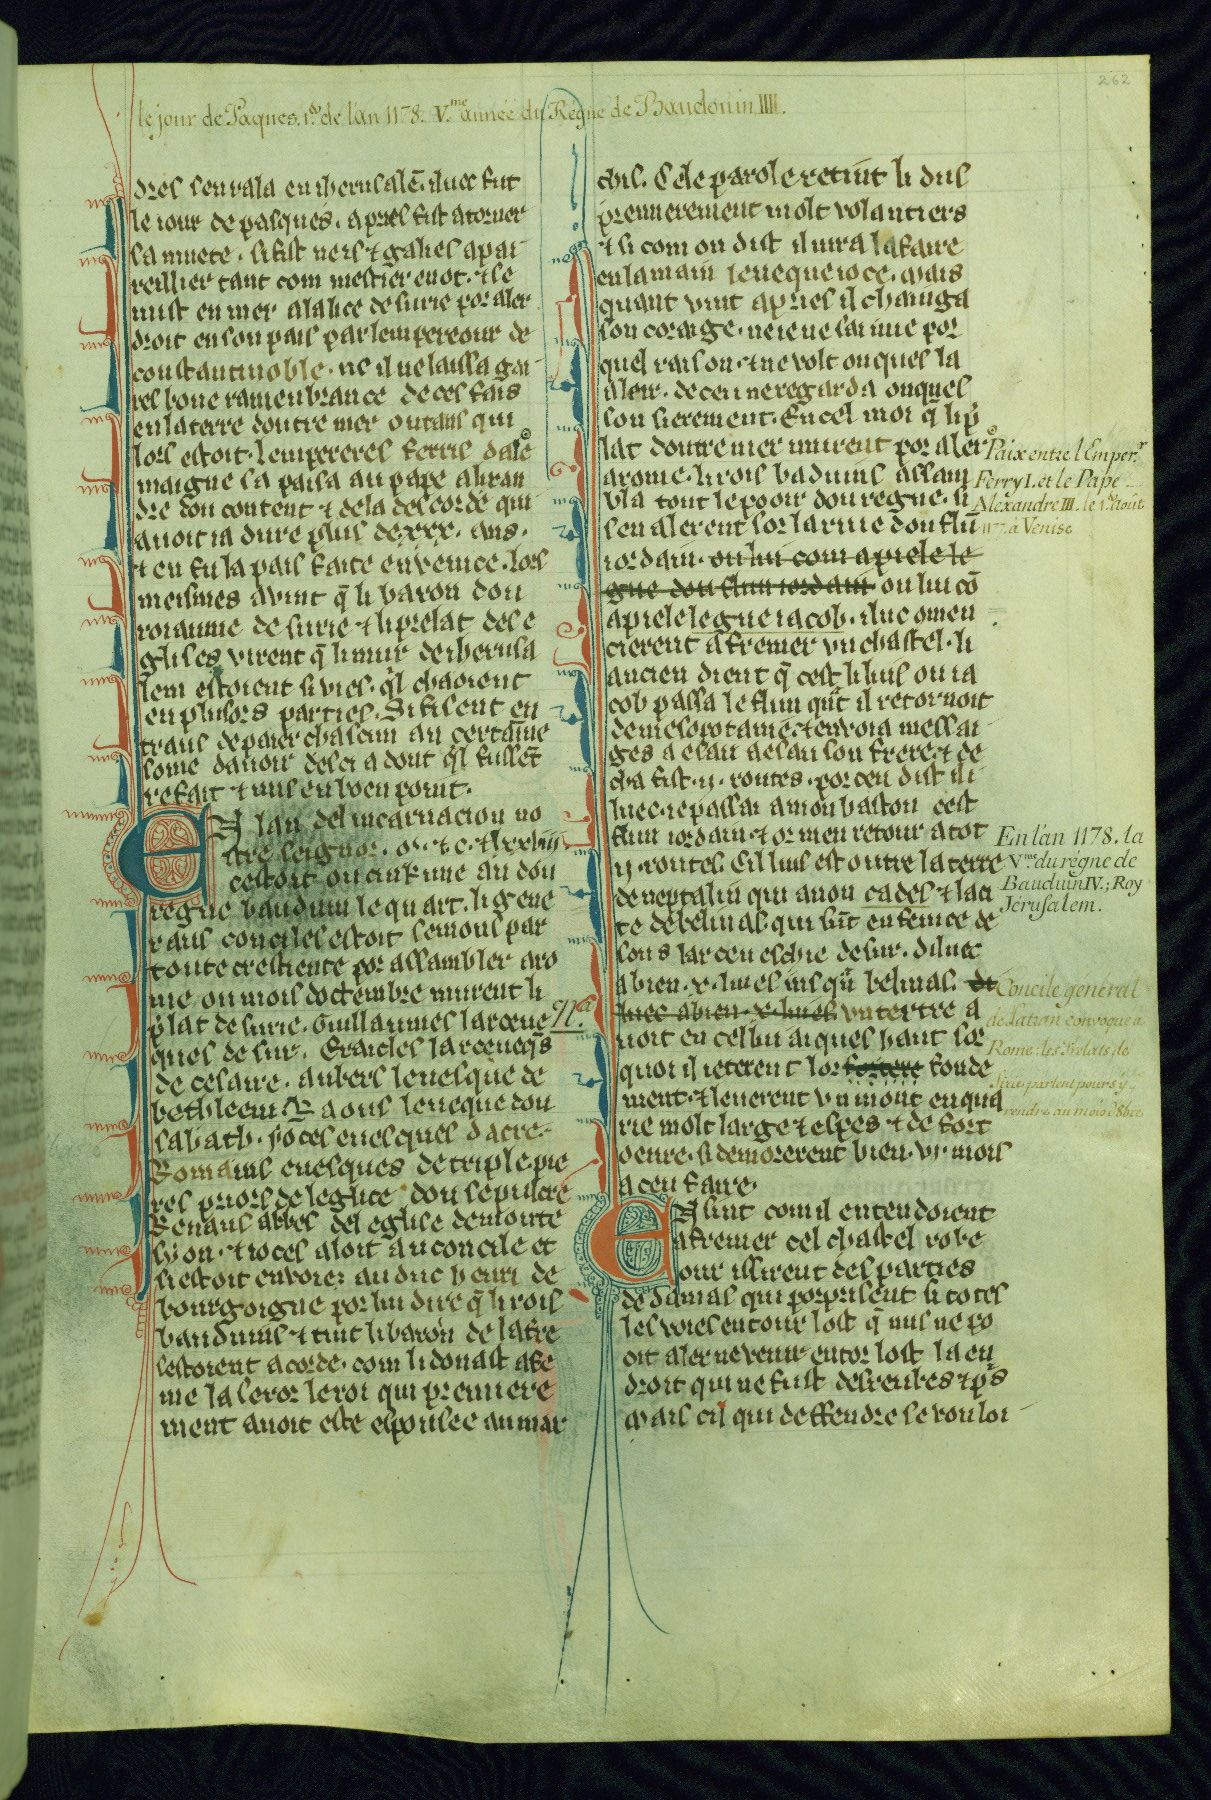 262
le jour de Paques. 1er de l'an 1178. V.me année du Régne de Baudouin IIII.
dres sen rala en iherusalē. iluec fut
le iour de pasques. apres fist atorner
sa muete. si fist neis ⁊ galies apai
reillier tant com mestier en ot. ⁊ se
mist en mer a la lice de surie por aler
droit en son pais par lempereour de
constantinoble. ne il ne laissa gai
res bone ramenbrance de ces fais
en la terre doutre mer ou tans qui
lors estoit. lempereres ferris dale
maigne sa paisa au pape alixan
dre dou content ⁊ de la descorde qui
auoit ia dure plus de .xxx. ans.
⁊ en fu la pais faite en venice. lors
meismes auint q̄ li baron dou
roiaume de surie ⁊ li prelat des e
glises virent q̄ li mur de iherusa
lem estoient si vies. ql chaoient
en plusors parties. Si fisent en
traus de paier chascun an certaine
some dauoir desci a dont ql fussēt
refait ⁊ mis en boen point.
En lan del incarnacion no
stre seignor. m. ⁊ c. ⁊ lxxviij.
cestoit ou cinkime an dou
regne bauduin le quart. li gene
raus conciles estoit semons par
toute crestiente por assambler a ro
me. ou mois doctembre murent li
p̄lat de surie. Guillaumes larceue
ques de sur. Eracles larceueq̄s
de cesaire. aubers leuesque de
bethleem. Raous leueque dou
sabath. ioces euesques dacre.
Romains euesques de triple. pie
res priors de leglise dou sepulcre
Renaus abbes del eglise de monte
syon. ⁊ ioces aloit au concile et
si estoit enuoiez au duc henri de
bourgoigne por lui dire q̄ li rois
bauduins ⁊ tuit li baron de la tre
sestoient acorde. com li donast a fe
me la seror le roi qui premiere
ment auoit este espousee au mar
chis. Cele parole retint li dus
premerement molt volantiers
⁊ si com on dist il iura la faire
en la main leueque ioce. Mais
quant vint apries il changa
son corage. ne ie ne sai mie por
quel raison. ⁊ ne volt onques la
aleir. de ceu ne regarda onques
son sierement. En cel moi q̄ li p̄
lat doutre mer murent por aler
a rome. li rois baduins assam
bla tout le pooir dou regne. si
sen alerent sor la riue dou flū
iordain. ou lui com apiele le
gue dou flun iordain ou lui cō
apiele le gue iacob. iluc omen
cierent a fremer vn chastel. li
ancien dient q̄ cest li lius ou ia
cob passa le flun qūt il retornoit
de mesopotamē ⁊ enuoia messai
ges a esau a esau son frere. ⁊ de
cha fist .ij. routes. por ceu dist ili
luec. ie passai a mon baston cest
flun iordain. ⁊ or men retour a tot
ij. routes. Cil lius est outre la terre
de neptalin qui anon cades ⁊ la ci
te de belinas. qui sūt en fenice de
sous larceueschie de sur. diluec
a bien .x. liues iusqū belinas. di
luec a bien .x. liues vn tertre a
uoit en cel lui aiques haut sor
quoi il ieterent lor fortere fonde
ment. ⁊ leuerent vn mont en qua
rie molt large ⁊ espes ⁊ de fort
oeure. si demorerent bien .vi. mois
a ceu faire.
Ensint com il entendoient
a fremer cel chastel robe
our issirent des parties
de damas qui porprisent si totes
les voies entour lost q̄ nus ne po
oit aler ne venir entor lost la en
droit qui ne fust desreubes ⁊ p̄s
Mais cil qui deffendre se vouloi
Paix entre l'Emper.r
Ferry I. et le Pape
Alexandre III. le 1er Août
1177. à Venise
En l'an 1178. la
V.me du règne de
Bauduin IV.; Roy
Jérusalem.
Na
Concile général
de Latran convoqué à
Rome. les Prélats de
Sirie partent pour s'y
rendre au mois d'8bre.